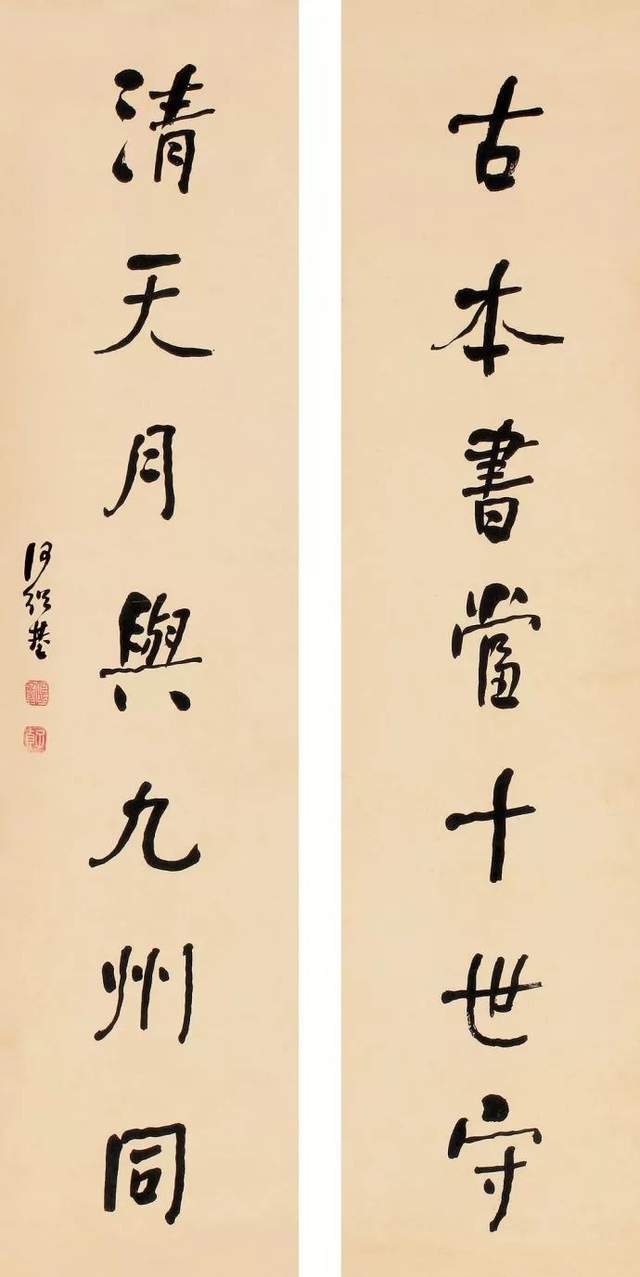 古本書當十世守
清天月與九州同
何紹基